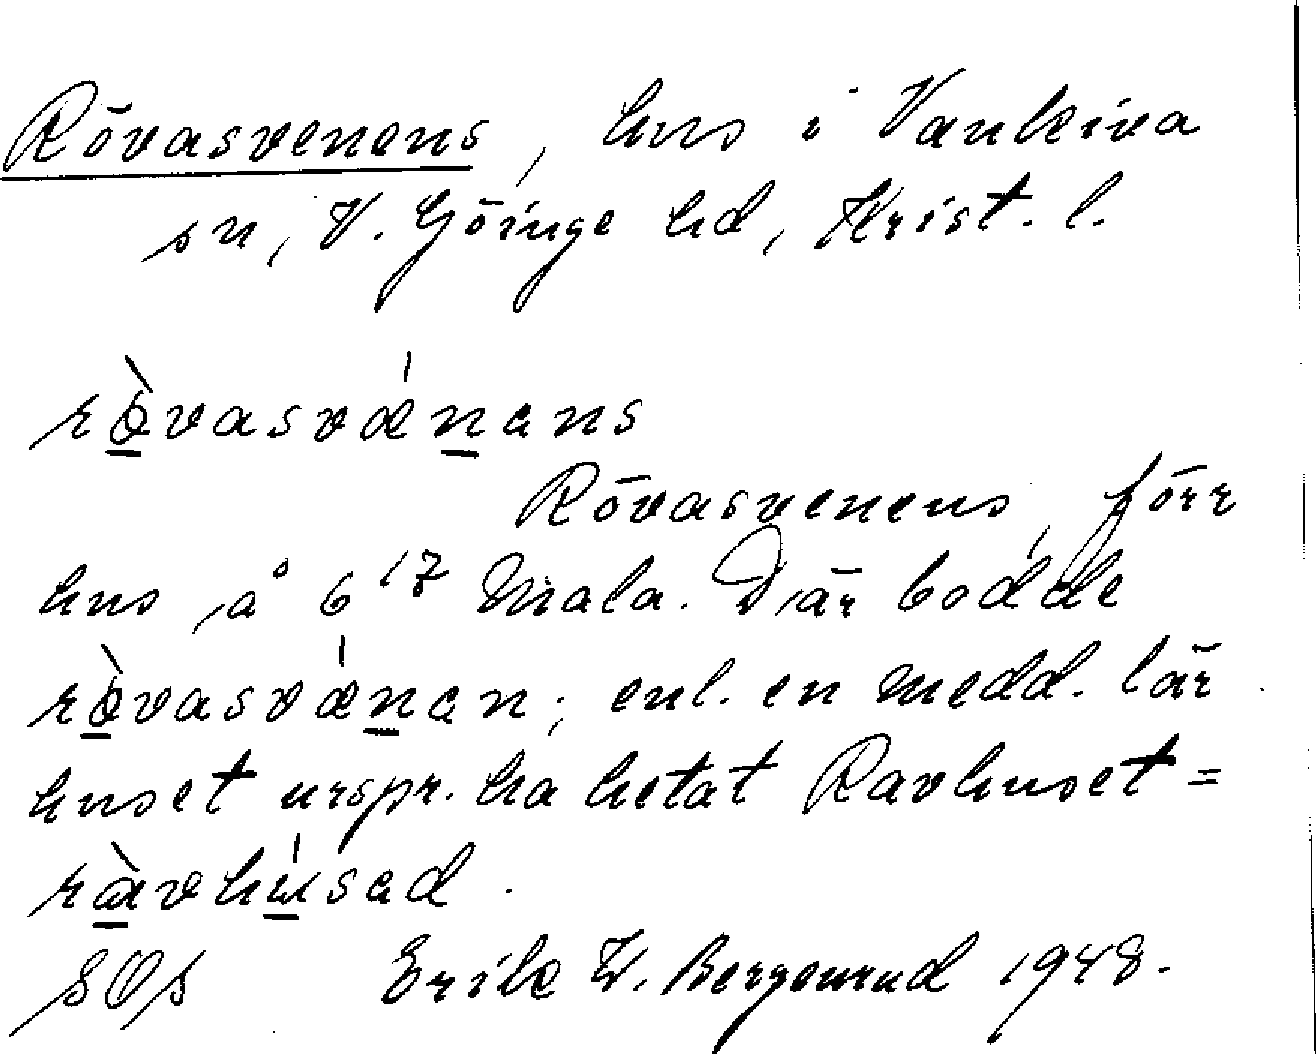 Rövasvenens, hus i Vankiva
sn, V. Göinge hd, Krist. l.
rö̀vasvǽnans
Rövasvenens, förr
hus å 6¹⁷ Mala. Där bodde
rö̀vasvǽnan; enl. en medd. lär
huset urspr. ha hetat Ravhuset =
rà̱vhú̱sad.
SOS Erik W. Bergenrud 1948.